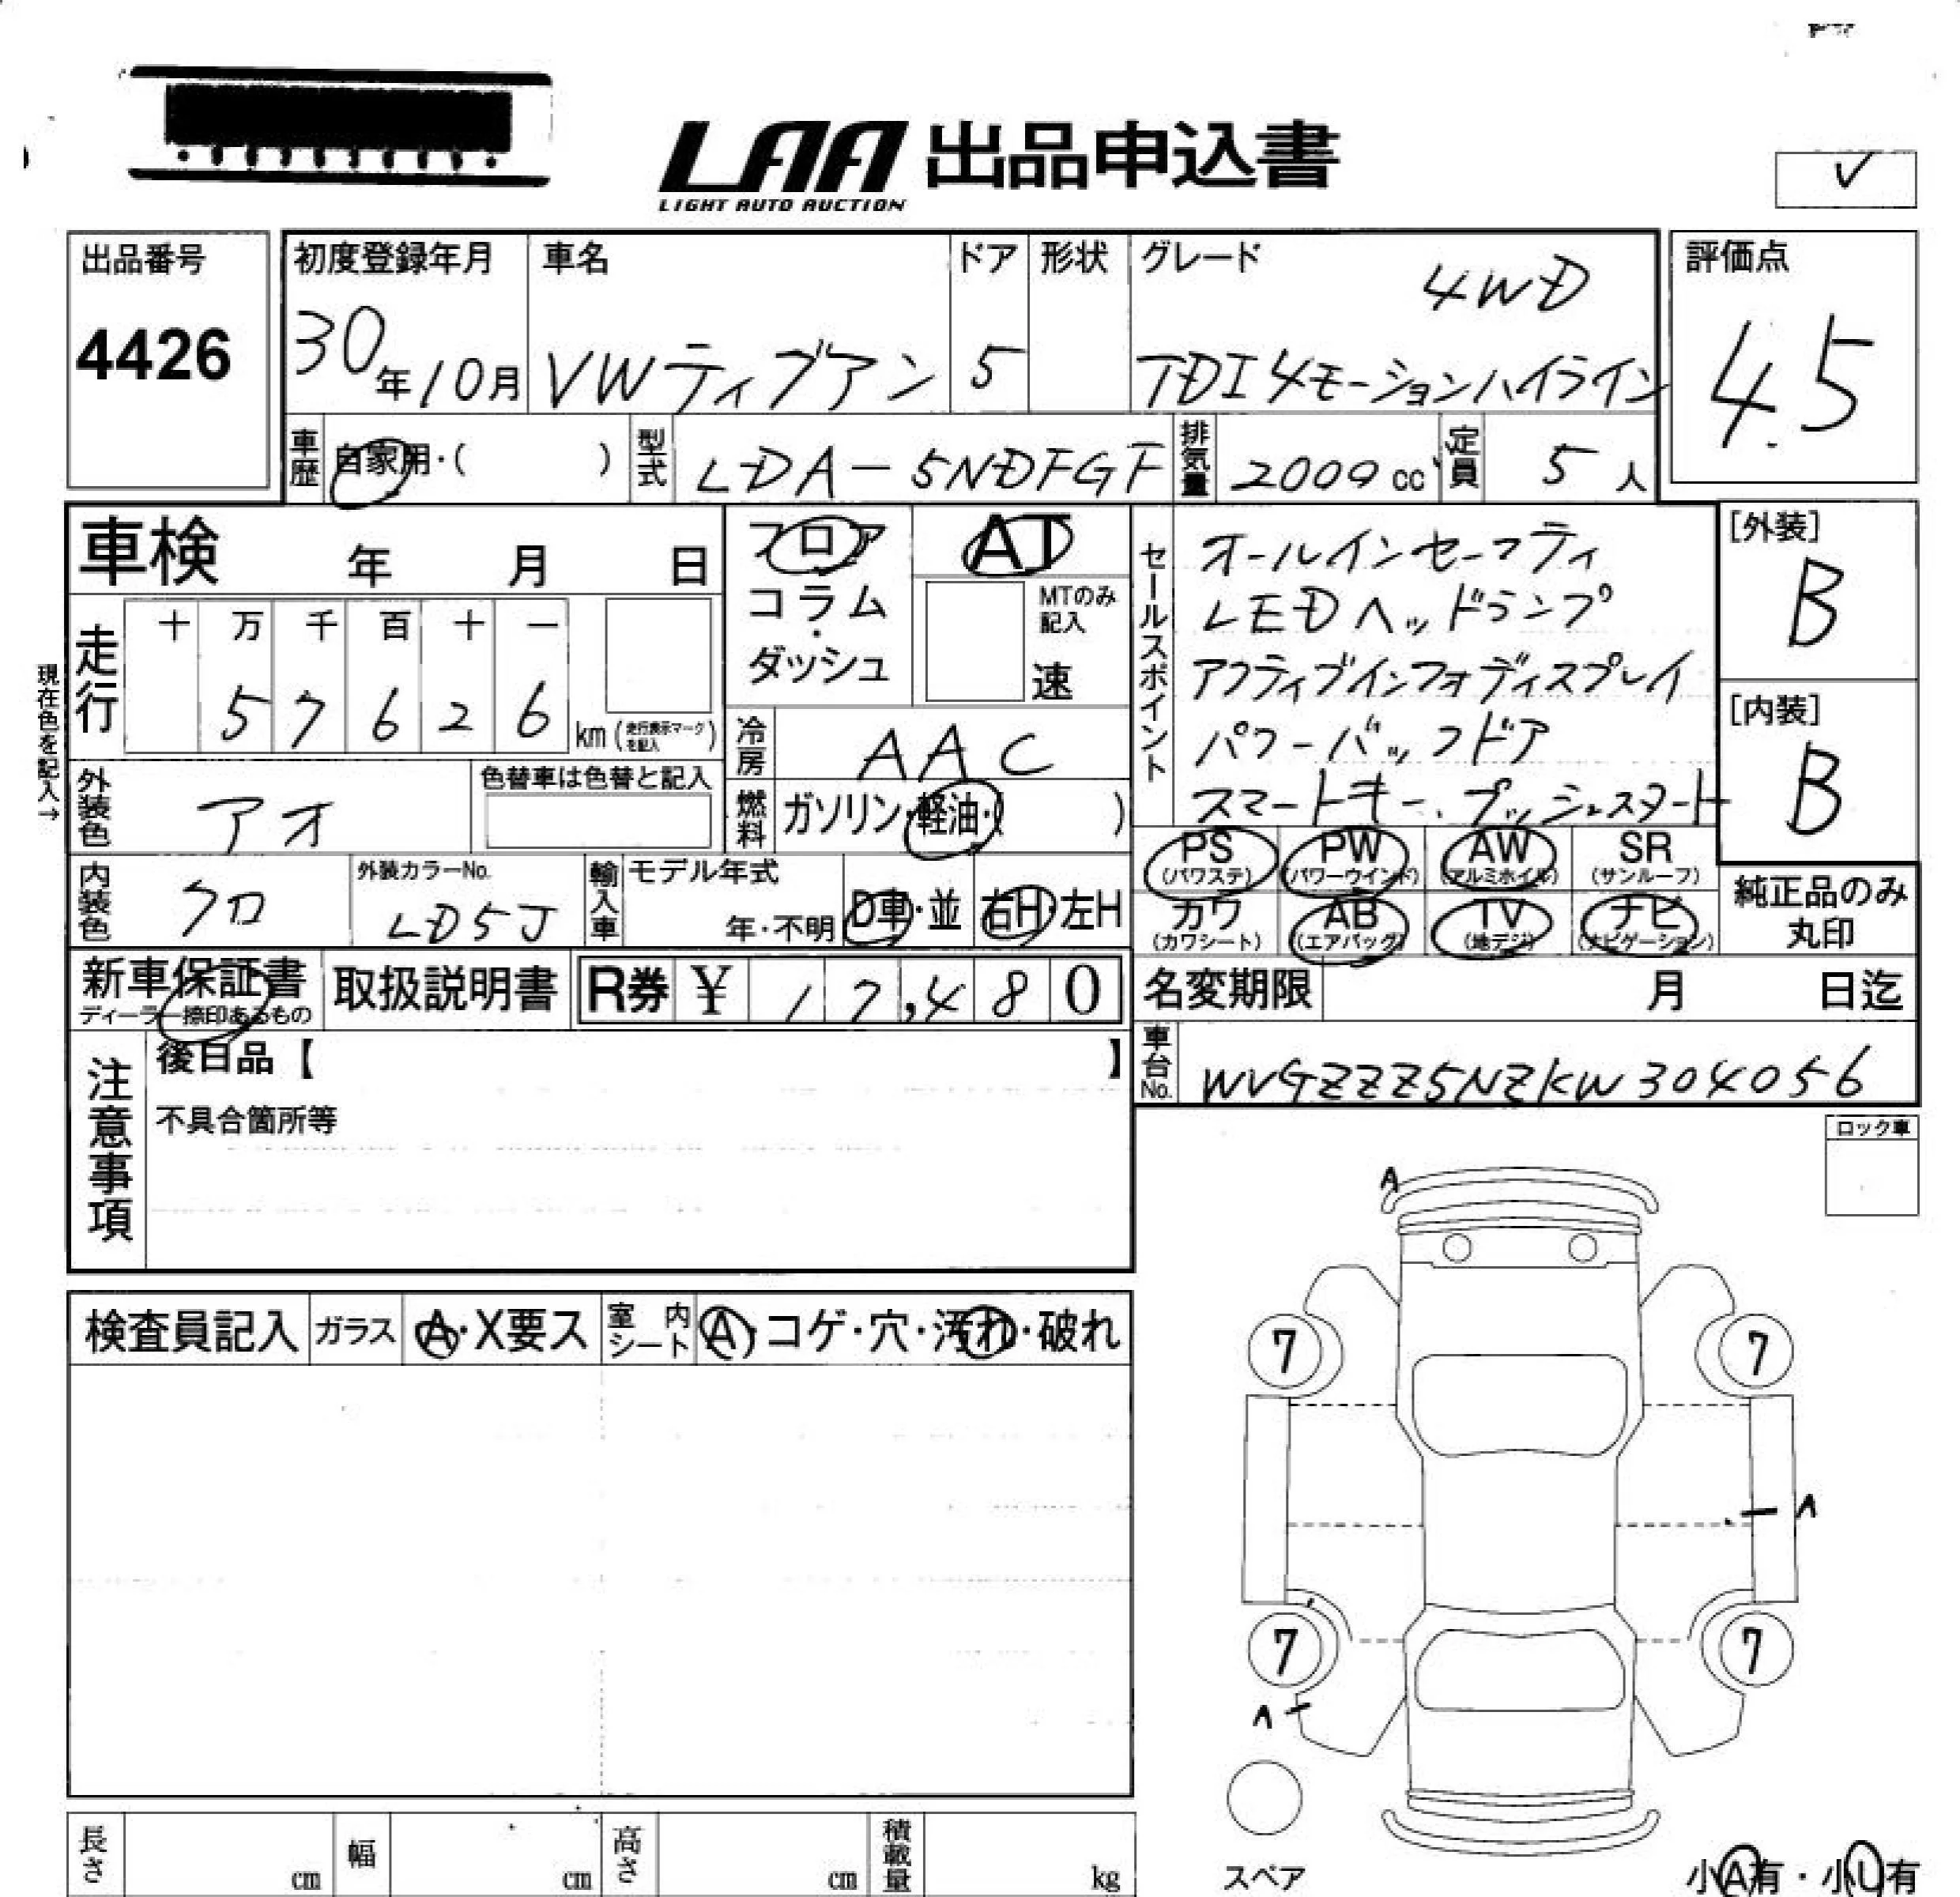 LAA 出品申込書
LIGHT AUTO AUCTION
✓
出品番号
4426
初度登録年月
30年10月
車名
VWティグアン
ドア
5
形状
グレード
4WD
TDI 4モーションハイライン
評価点
4.5
車歴
自家用・( )
型式
LDA-5NDFGF
排気量
2000 cc
定員
5 人
車検 年 月 日
フロア
コラム
・
ダッシュ
AT
MTのみ
記入
速
セールスポイント
オールインセーフティ
LEDヘッドランプ
アクティブインフォディスプレイ
パワーバックドア
スマートキー、プッシュスタート
[外装]
B
[内装]
B
現在色を記入→
走行
十 万 千 百 十 一
5 7 6 2 6
km (走行表示マークを記入)
冷房
AAC
燃料
ガソリン・軽油・( )
外装色
アオ
色替車は色替と記入
PS
(パワステ)
PW
(パワーウインド)
AW
(アルミホイル)
SR
(サンルーフ)
カワ
(カワシート)
AB
(エアバッグ)
TV
(地デジ)
ナビ
(ナビゲーション)
純正品のみ
丸印
内装色
クロ
外装カラーNo.
LD5J
輸入車
モデル年式
年・不明
D車・並
右H・左H
新車保証書
ディーラー捺印あるもの
取扱説明書
R券 ¥ 17,480
名変期限 月 日迄
車台No.
WVGZZZ5NZKW304056
注意事項
後日品【 】
不具合箇所等
ロック車
検査員記入
ガラス
A・X要ス
室内
シート
A・コゲ・穴・汚れ・破れ
A
7
7
A
7
7
A
スペア
長さ cm
幅 cm
高さ cm
積載量 kg
小A有・小U有